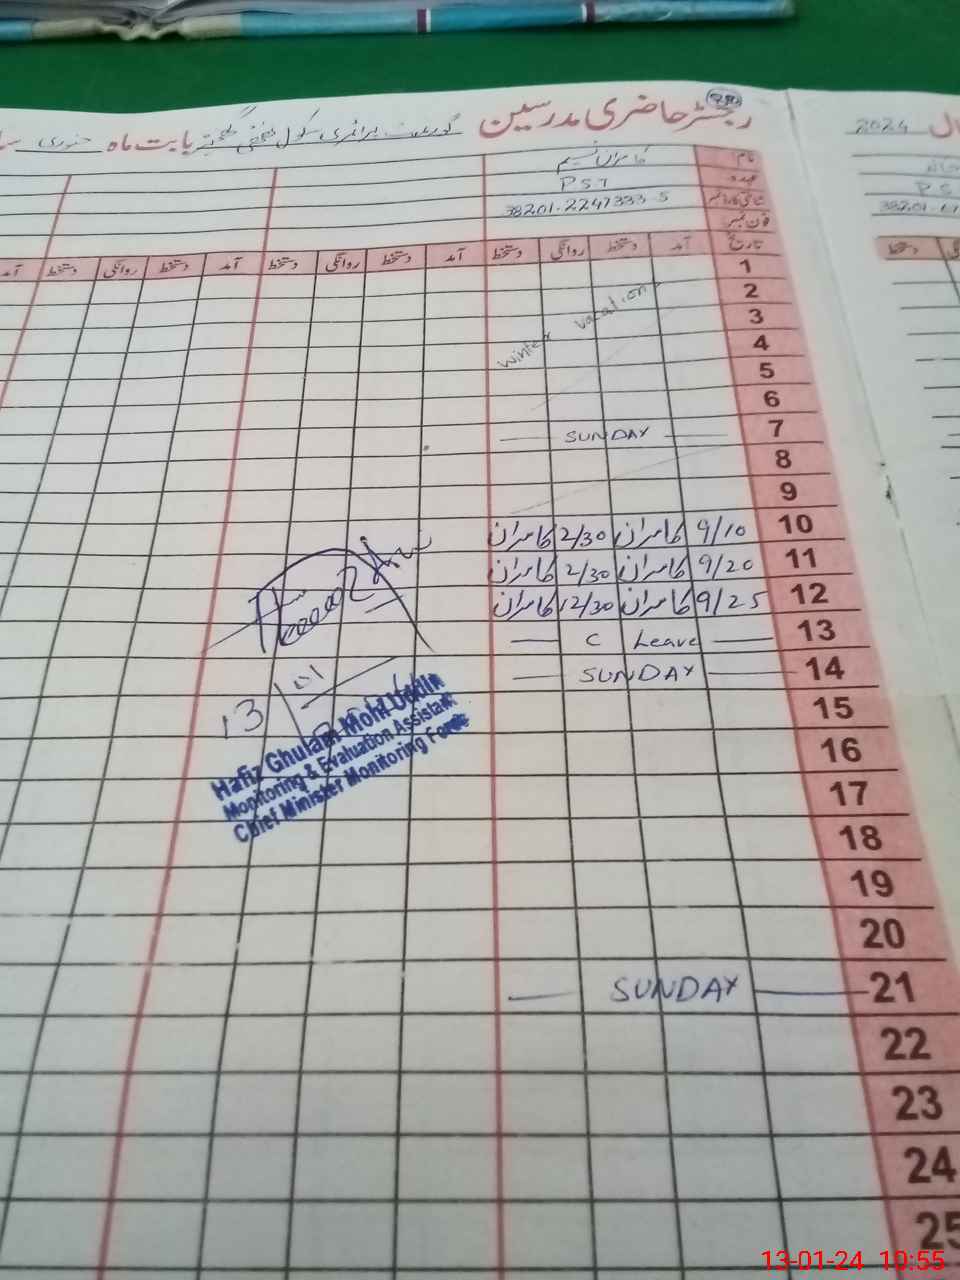 رجسٹر حاضری مدرسین گورنمنٹ پرائمری سکول بابت ماہ جنوری
ال 2024
نام کامران نسیم
عہدہ PST
شناختی کارڈ نمبر 38201-2247333-5
فون نمبر
تاریخ آمد دستخط روانگی دستخط آمد دستخط روانگی دستخط آمد دستخط روانگی دستخط آمد
PS
38201-
دستخط
1
2
winter vacations
3
4
5
6
7 SUNDAY
8
9
10 9/10 کامران 2/30 کامران
11 9/20 کامران 2/30 کامران
12 9/25 کامران 12/30 کامران
13 C Leave
14 SUNDAY
15
16
17
18
19
20
21 SUNDAY
22
23
24
25
13/01
Hafiz Ghulam Mohi Uddin
Monitoring & Evaluation Assistant
Chief Minister Monitoring Force
13-01-24 10:55